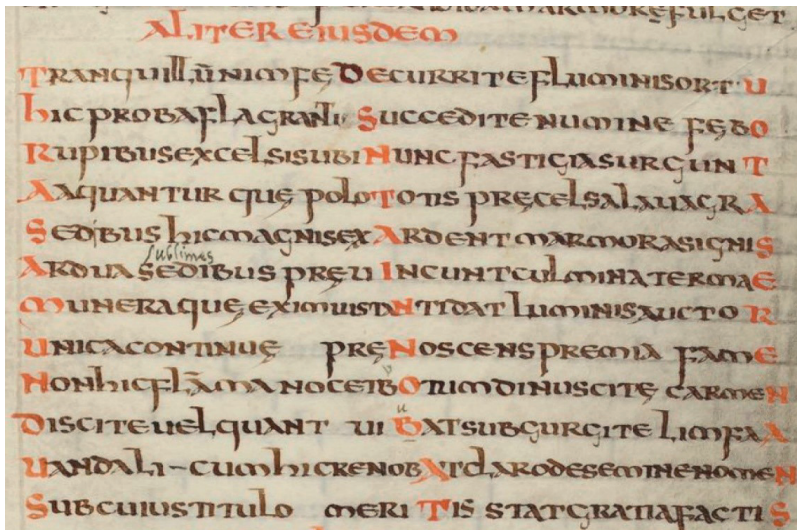 MARMORĘ FULGET
ALITER EIUSDEM
TRANQUILLŪ NIMFĘ DECURRITE FLUMINIS ORTU
hIC PROBA FLAGRANTI SUCCEDITE NUMINE FĘBO
RUPIBUS EXCELSIS UBI NUNC FASTIGIA SURGUNT
AAQUANTUR QUĘ POLO TOTIS PRĘCELSA LAUAGRA
SEDIBUS hIC MAGNIS EXARDENT MARMORA SIGNIS
sublimes
ARDUA SEDIBUS PRĘUINCUNT CULMINA TERMAE
MUNERAQUĘ EXIMIUISTANTI DAT LUMINIS AUCTOR
UNICA CONTINUĘ PRĘNOSCENS PREMIA FAME
NON hIC FLĀMA NOCEIBOTUM DINUSCITĘ CARMEN
DISCITE UEL QUANT UIBAT SUB GURGITE LIMFA
UANDALI-CUM hIC RENOBAT CLARO DE SEMINE NOMEN
SUB CUIUS TITULO MERITIS STAT GRATIA FACTIS